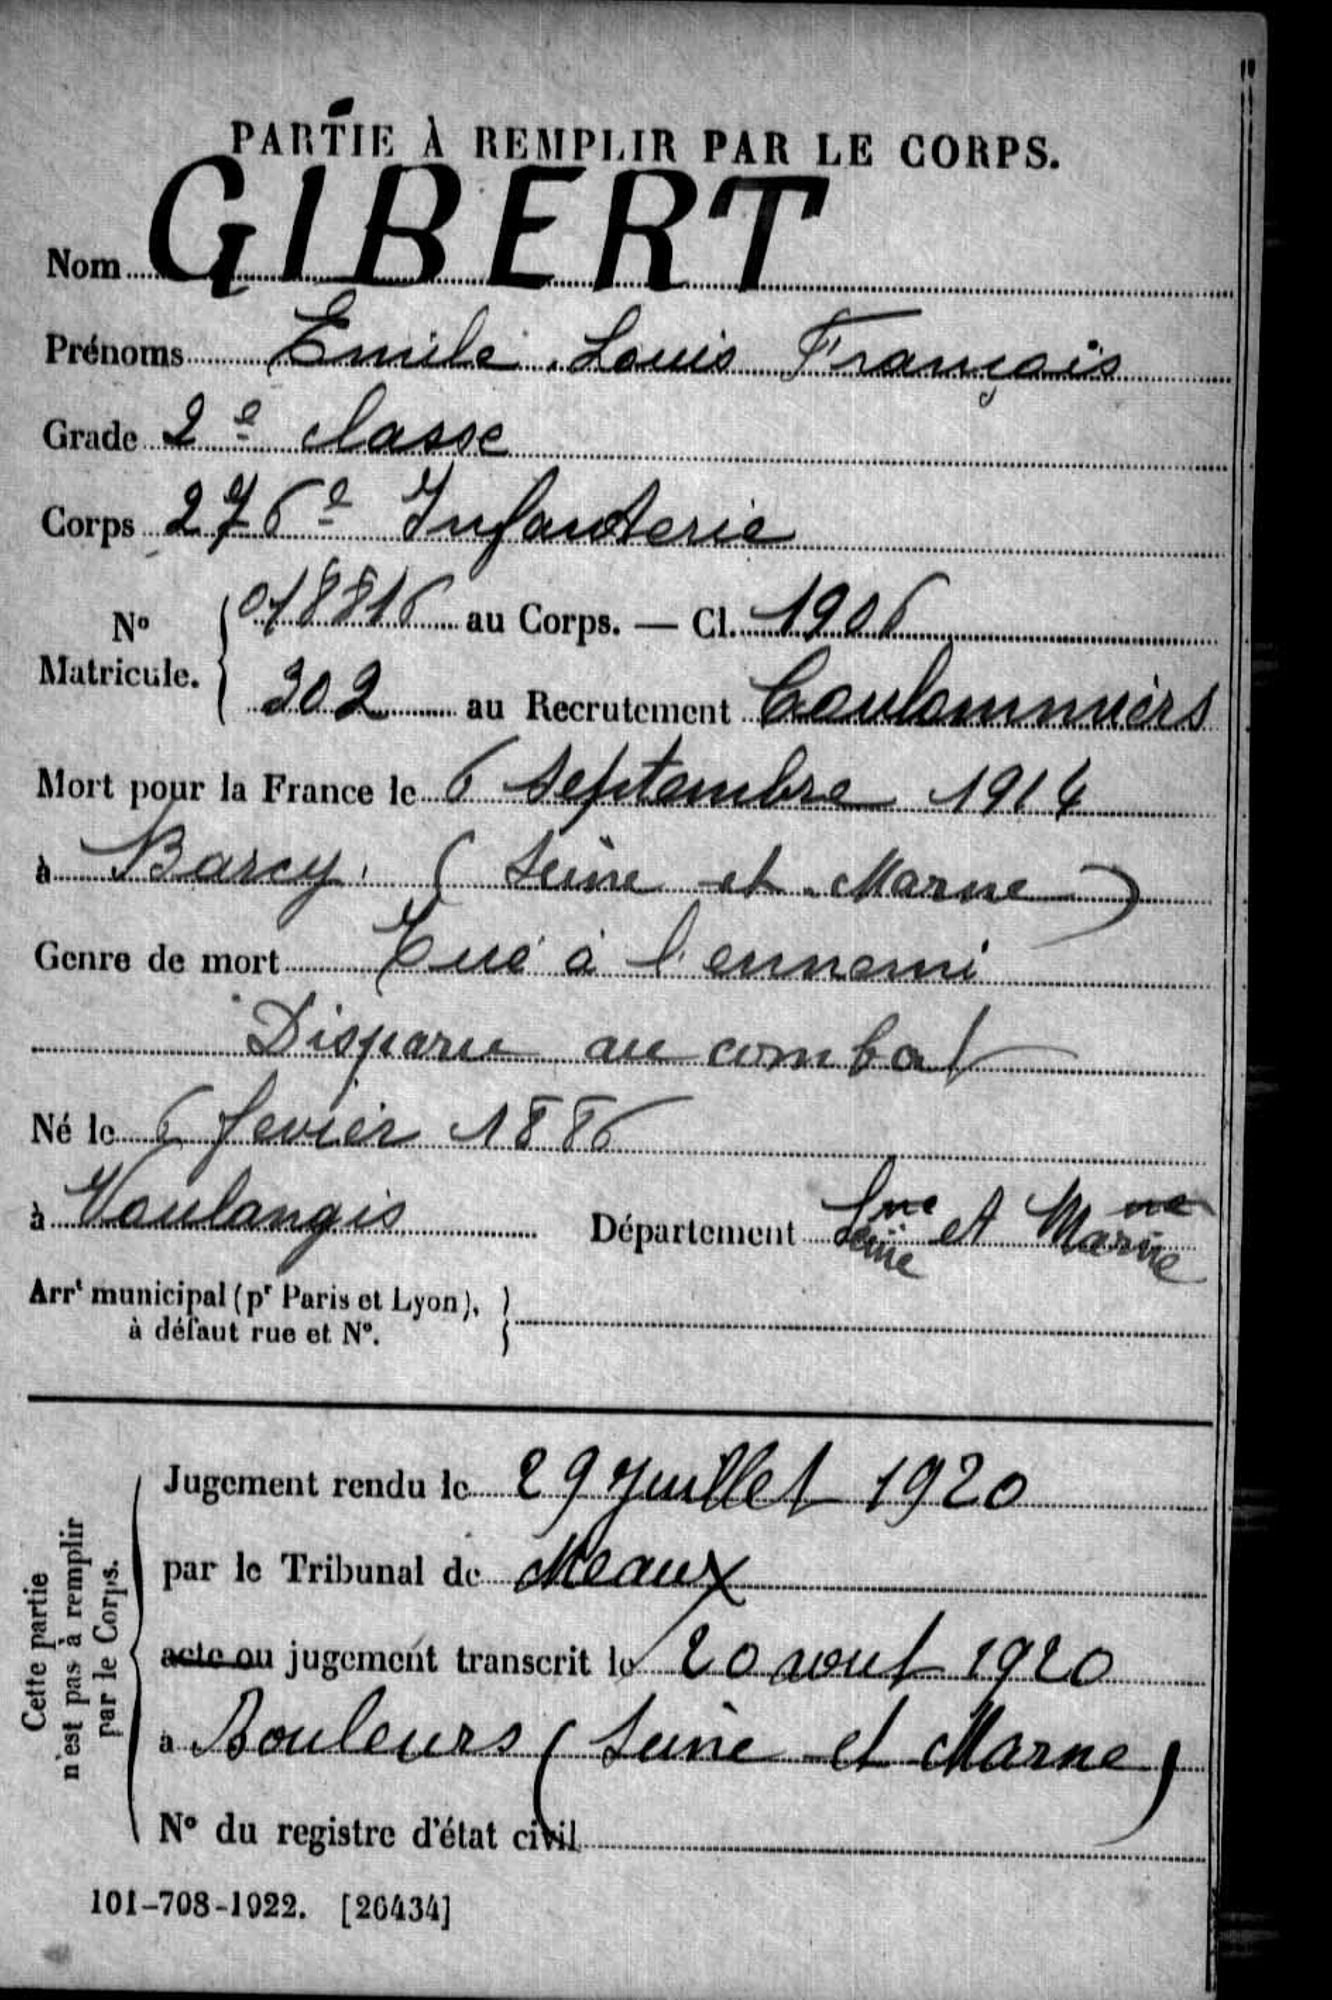 PARTIE À REMPLIR PAR LE CORPS.
Nom GIBERT
Prénoms Emile Louis Français
Grade 2e classe
Corps 276e Infanterie
No Matricule. { 018816 au Corps. — Cl. 1906
302 au Recrutement Coulommiers
Mort pour la France le 6 Septembre 1914
à Barcy (Seine et Marne)
Genre de mort Tué à l'ennemi
Disparu au combat
Né le 6 fevier 1886
à Voulangis Département Sne et Mane
Seine Marne
Arrt municipal (pr Paris et Lyon),
à défaut rue et No.
Cette partie
n'est pas à remplir
par le Corps.
Jugement rendu le 29 Juillet 1920
par le Tribunal de Meaux
acte ou jugement transcrit le 20 aout 1920
à Bouleurs (Seine et Marne)
No du registre d'état civil
101-708-1922. [26434]